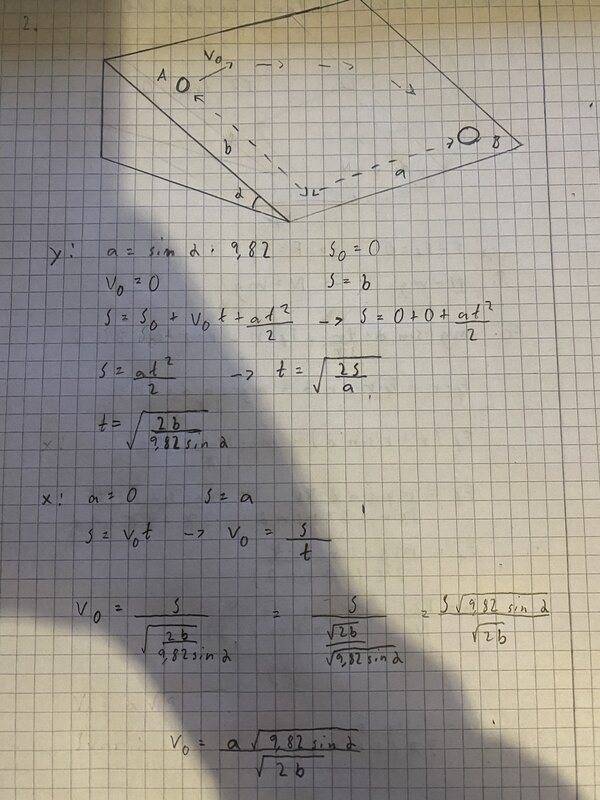 2.
V₀ → → →
A
B
b
a
α
y: a = sin α · 9,82 s₀ = 0
v₀ = 0 s = b
s = s₀ + v₀ t + at²/2 → s = 0 + 0 + at²/2
s = at²/2 → t = √(2s/a)
t = √(2b/9,82 sin α)
x: a = 0 s = a
s = v₀t → v₀ = s/t
v₀ = s/√(2b/9,82 sin α) = s/(√2b/√9,82 sin α) = s√9,82 sin α/√2b
v₀ = a√9,82 sin α/√2b